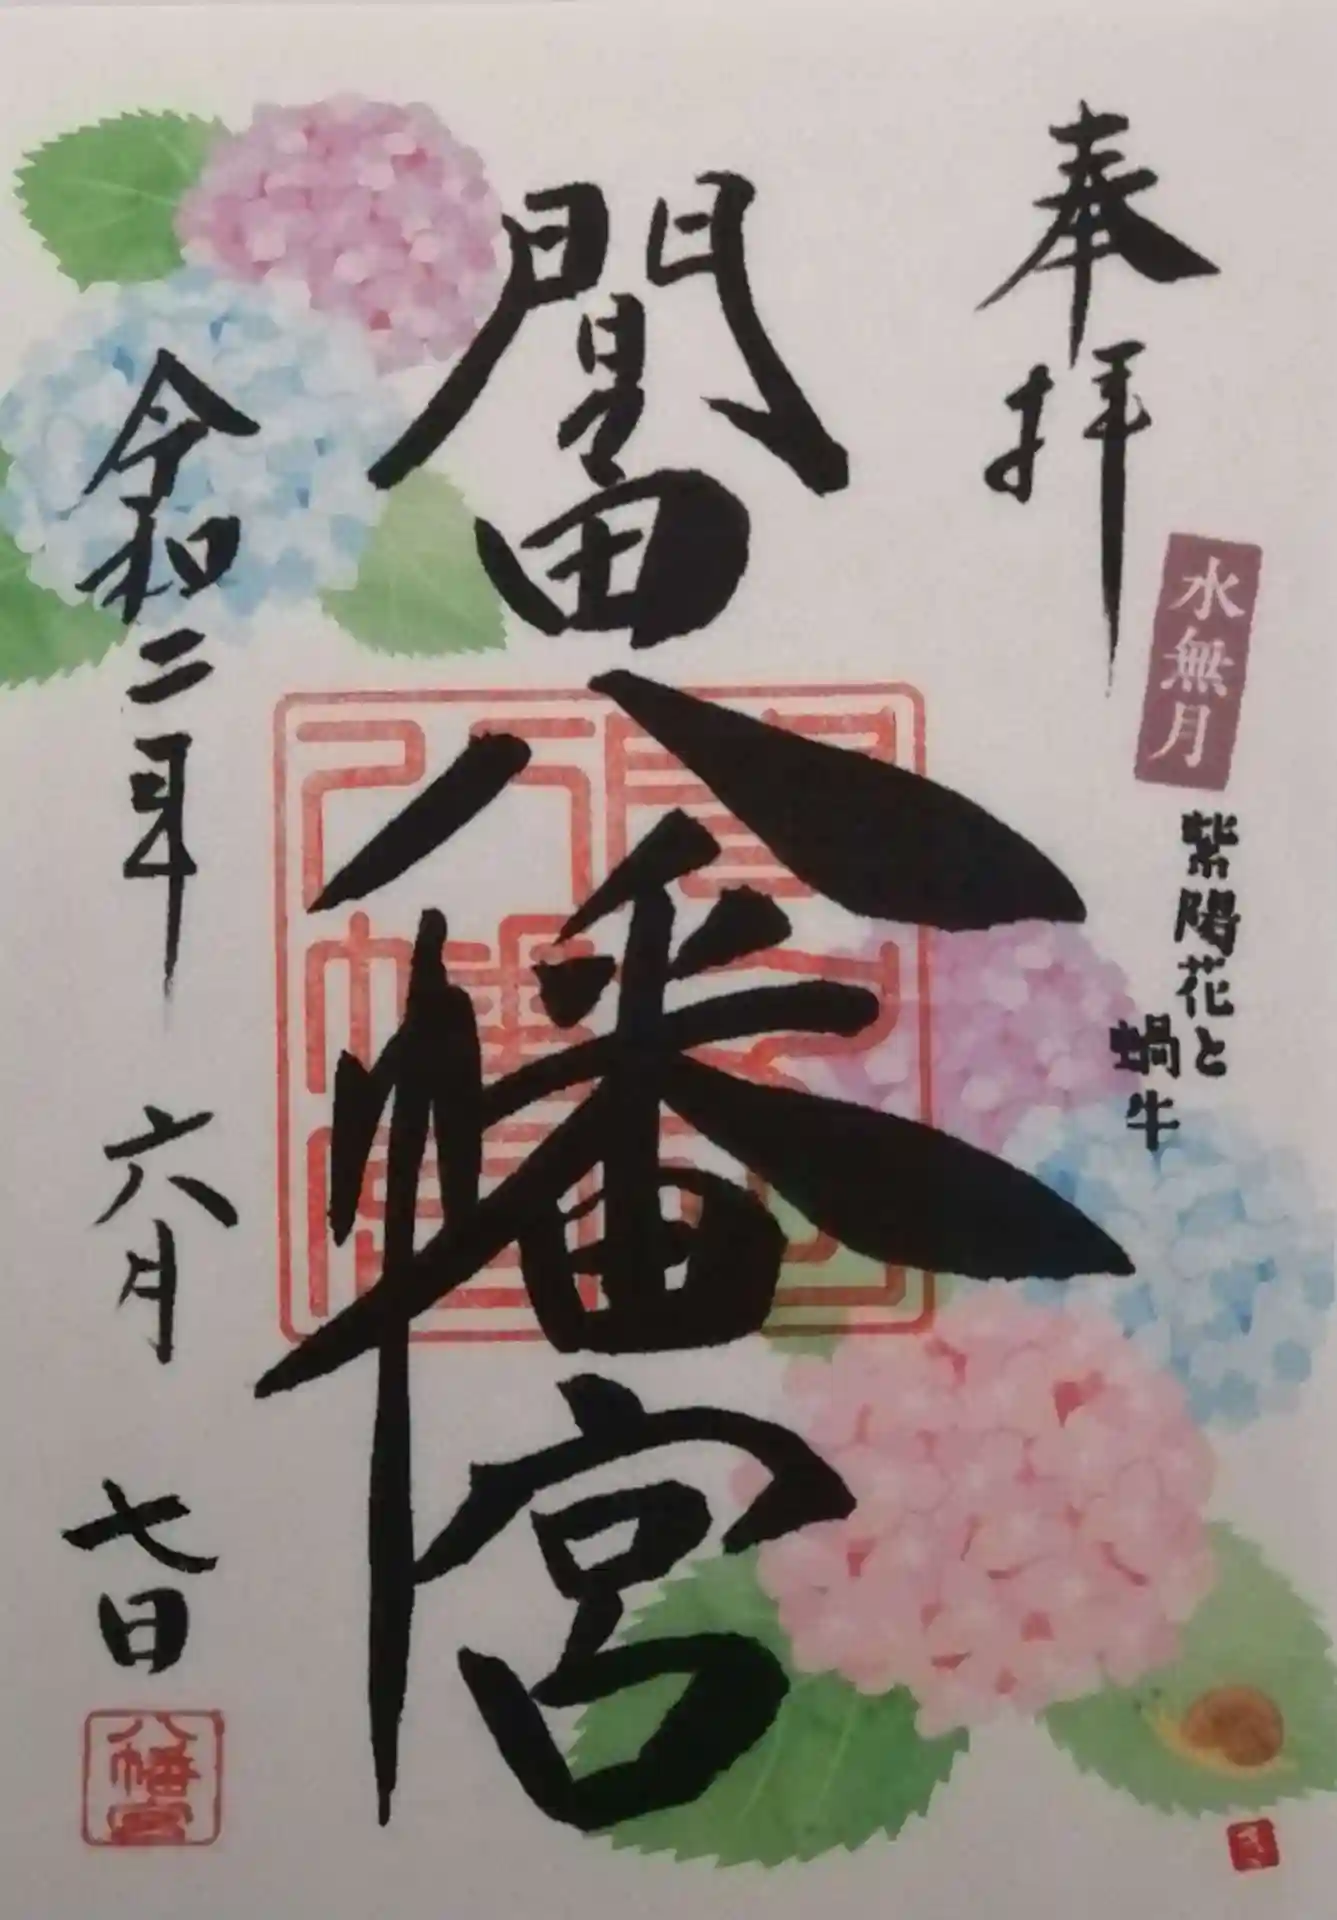 奉拝
水無月
紫陽花と
蝸牛
間々田八幡宮
令和二年 六月 七日
八幡宮